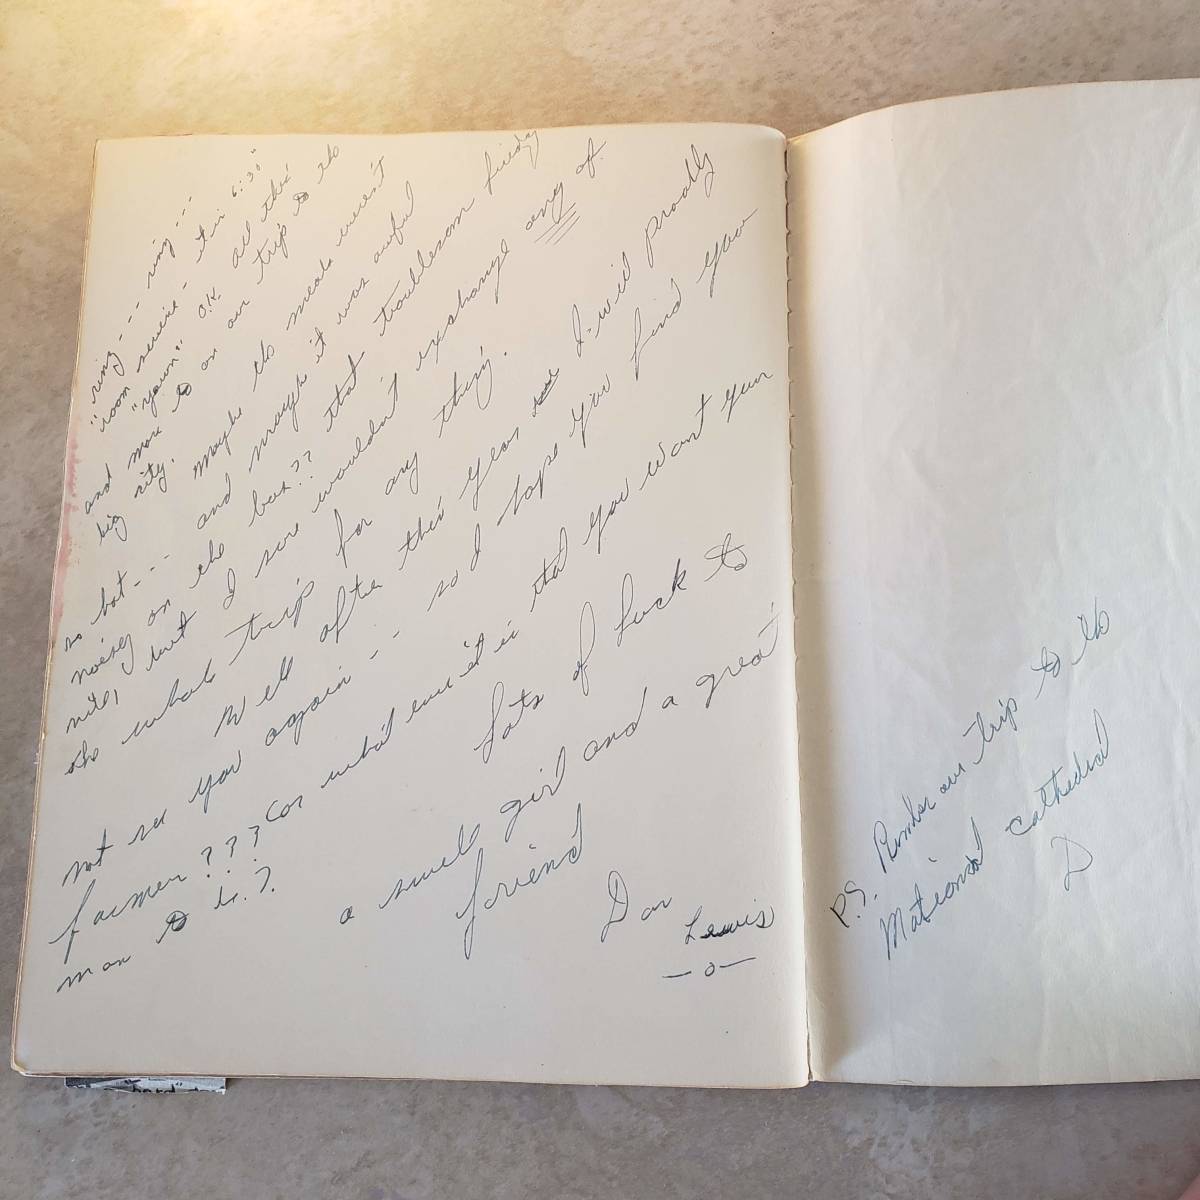 "ring - - - ring - - -
"room service - it is 6:30"
"yawn" O.K. all this
and more to on our trip to the
big city. Maybe the meals weren't
so hot - - - and maybe it was awful
noisy on the bus?? that troublesom friday
nite, but I sure wouldn't exchange any of
the whole trip for any thing.
Well after this year I will probally
not see you again - so I hope you find your
farmer??? (or what ever it is that you want your
man to be?.
Lots of luck to
a swell girl and a great
friend
Don
Lewis
—o—
P.S. Rember our trip to the
National Cathedral
D